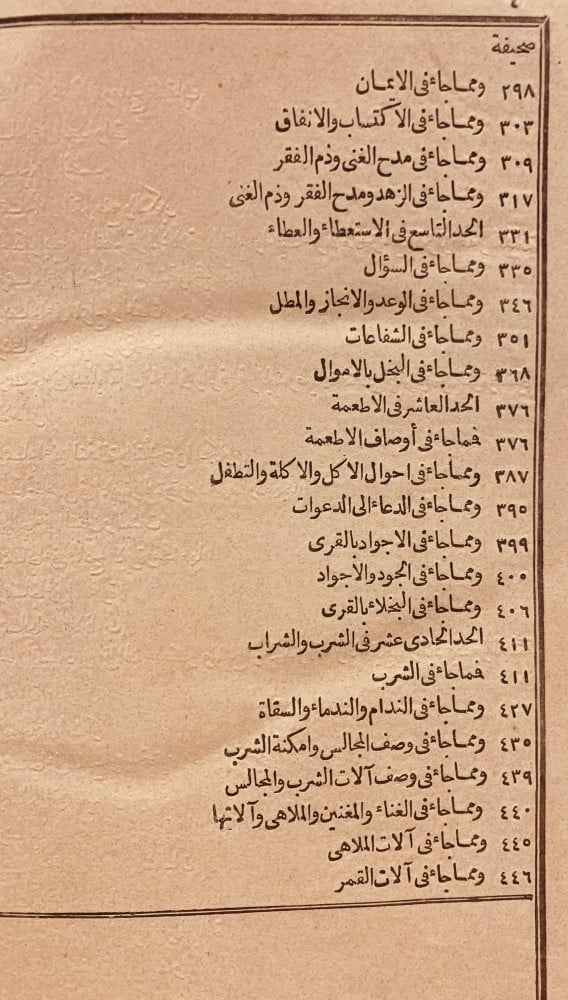 ٤
صحيفة
٢٩٨ ومما جاء فى الايمان
٣٠٣ ومما جاء فى الاكتساب والانفاق
٣٠٩ ومما جاء فى مدح الغنى وذم الفقر
٣١٧ ومما جاء فى الزهد ومدح الفقر وذم الغنى
٣٣١ الحد التاسع فى الاستعطاء والعطاء
٣٣٥ ومما جاء فى السؤال
٣٤٦ ومما جاء فى الوعد والانجاز والمطل
٣٥١ ومما جاء فى الشفاعات
٣٦٨ ومما جاء فى البخل بالاموال
٣٧٦ الحد العاشر فى الاطعمة
٣٧٦ فما جاء فى أوصاف الاطعمة
٣٨٧ ومما جاء فى احوال الاكل والاكلة والتطفل
٣٩٥ ومما جاء فى الدعاء الى الدعوات
٣٩٩ ومما جاء فى الاجواد بالقرى
٤٠٠ ومما جاء فى الجود والأجواد
٤٠٦ ومما جاء فى البخلاء بالقرى
٤١١ الحد الحادى عشر فى الشرب والشراب
٤١١ فما جاء فى الشرب
٤٢٧ ومما جاء فى الندام والندماء والسقاة
٤٣٥ ومما جاء فى وصف المجالس وامكنة الشرب
٤٣٩ ومما جاء فى وصف آلات الشرب والمجالس
٤٤٠ ومما جاء فى الغناء والمغنين والملاهى وآلاتها
٤٤٥ ومما جاء فى آلات الملاهى
٤٤٦ ومما جاء فى آلات القمر